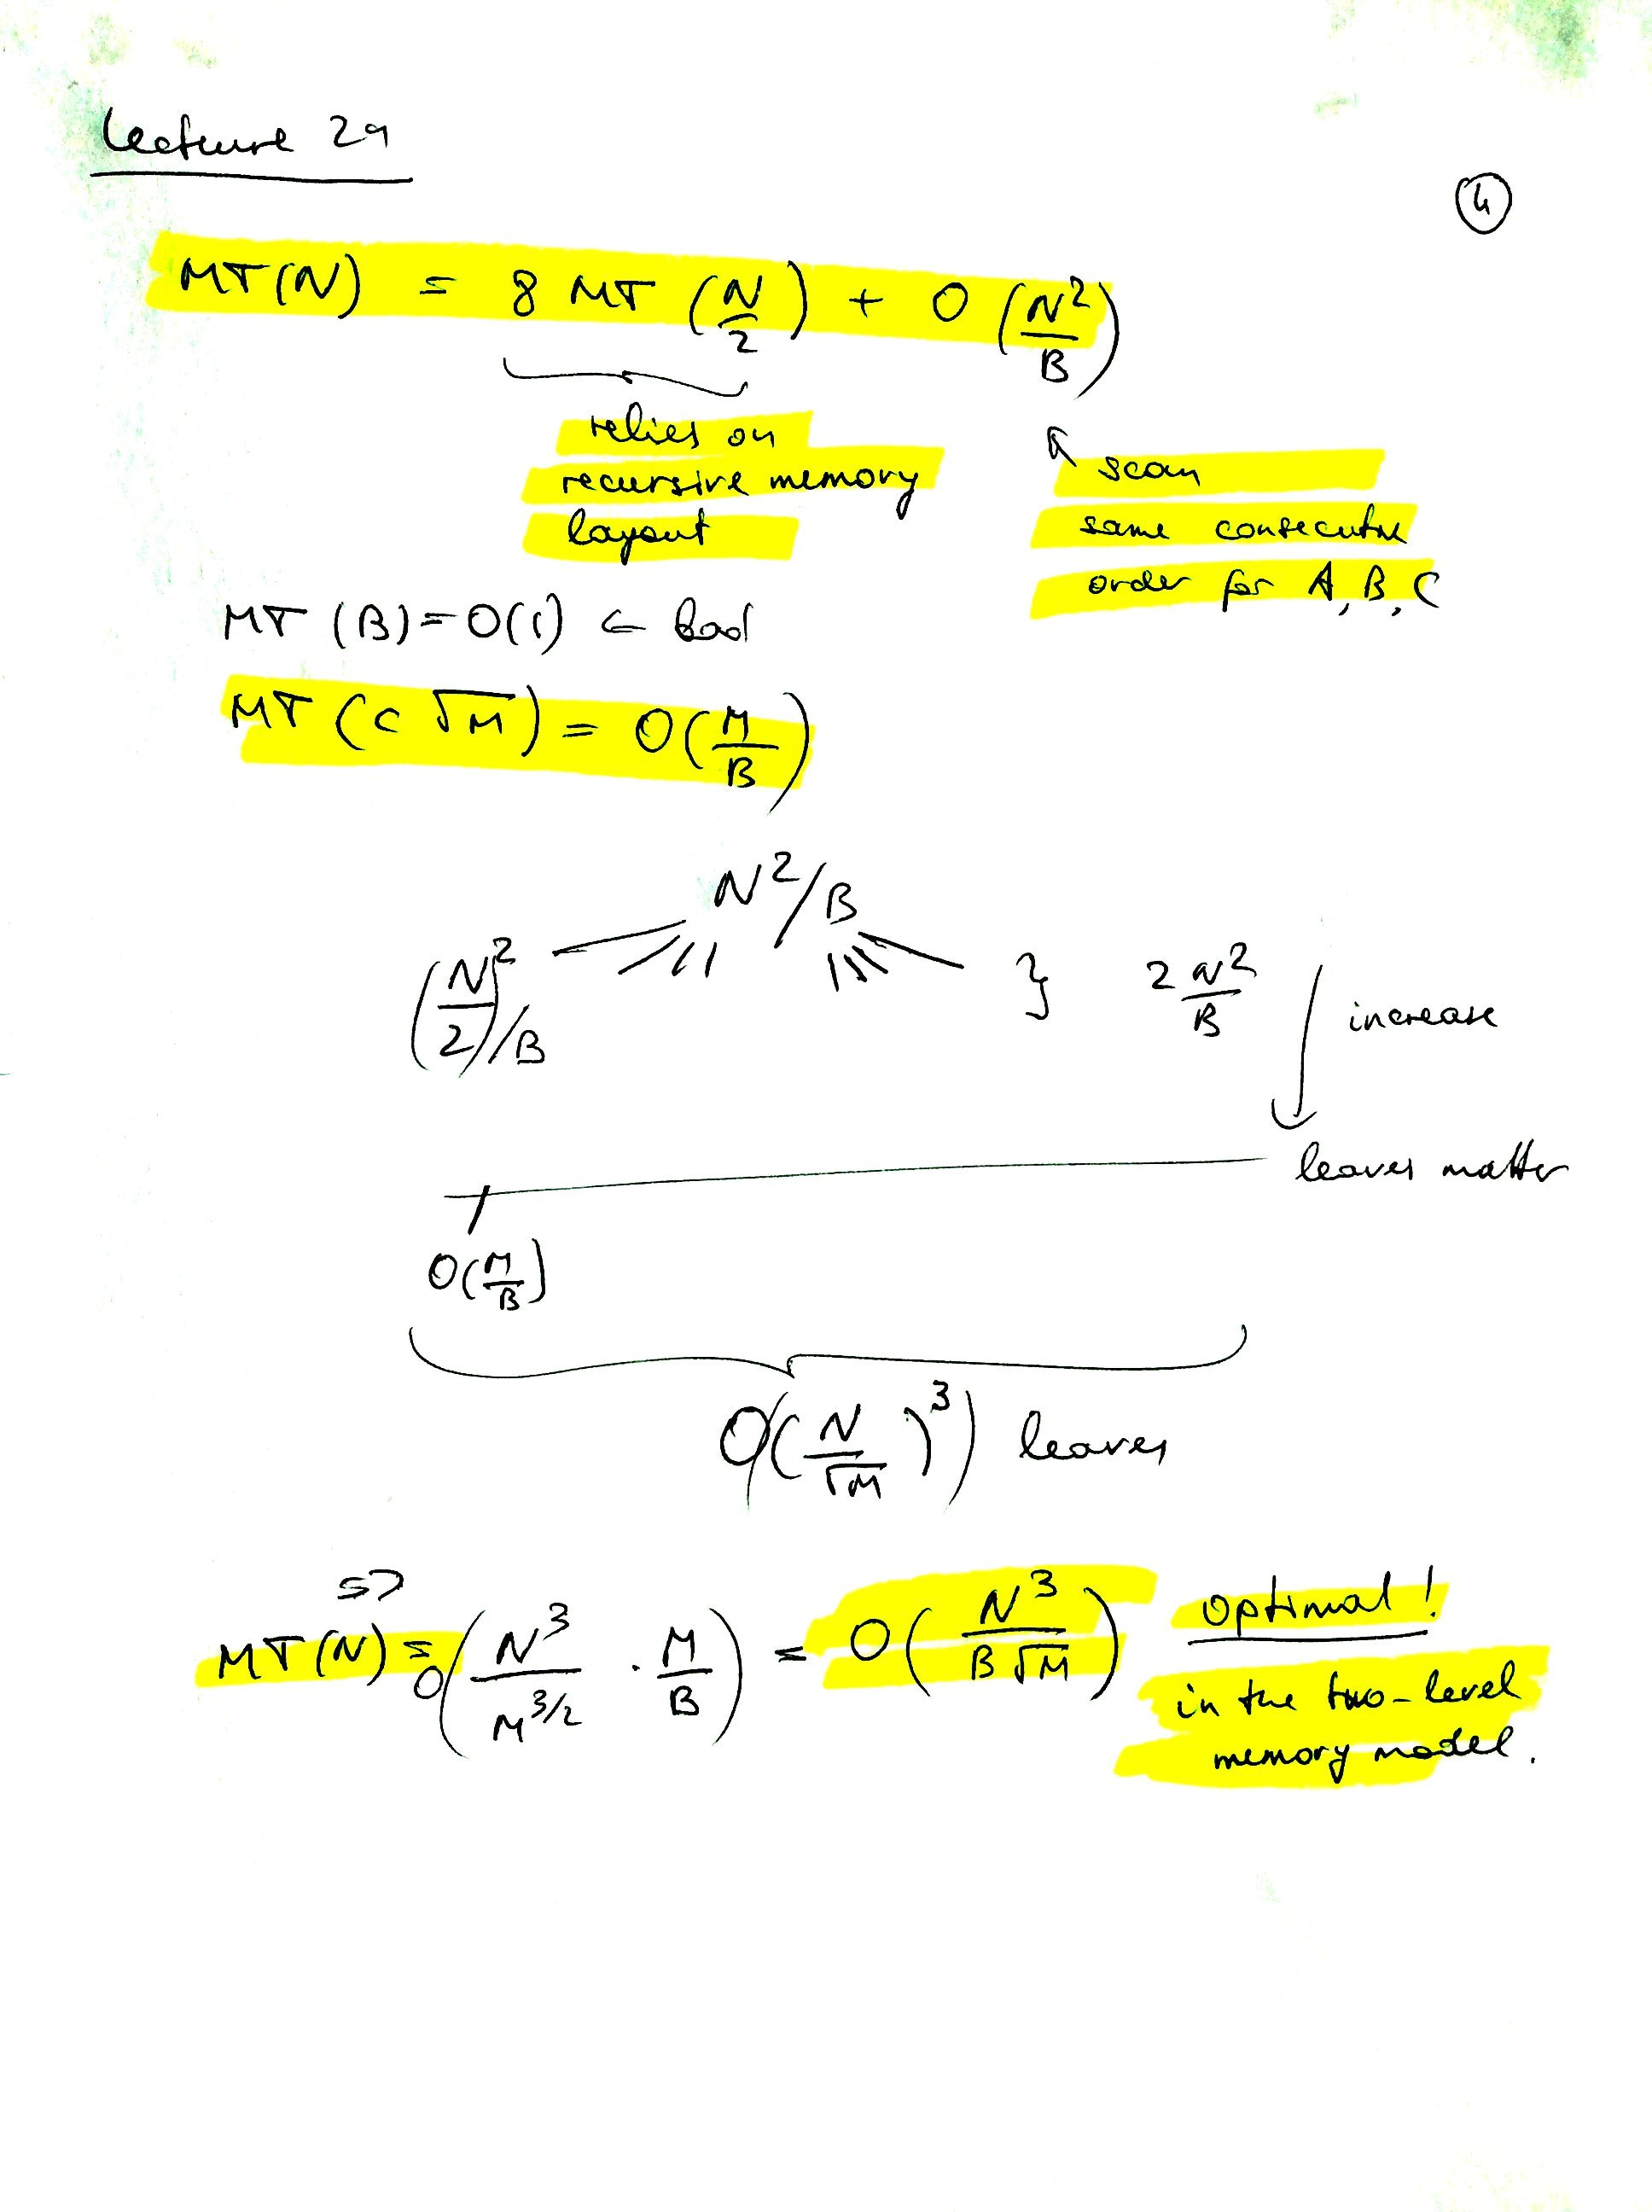 Lecture 29
4
MT(N) = 8 MT (N/2) + O (N²/B)
relies on
recursive memory
layout
scan
same consecutive
order for A, B, C
MT (B) = O(1) ← bad
MT (c √M) = O(M/B)
N²/B
(N/2)²/B } 2 N²/B
increase
leaves matter
O(M/B)
O((N/√M)³) leaves
=>
MT(N) = O(N³/M^3/2 · M/B) = O(N³/B√M) optimal!
in the two-level
memory model.